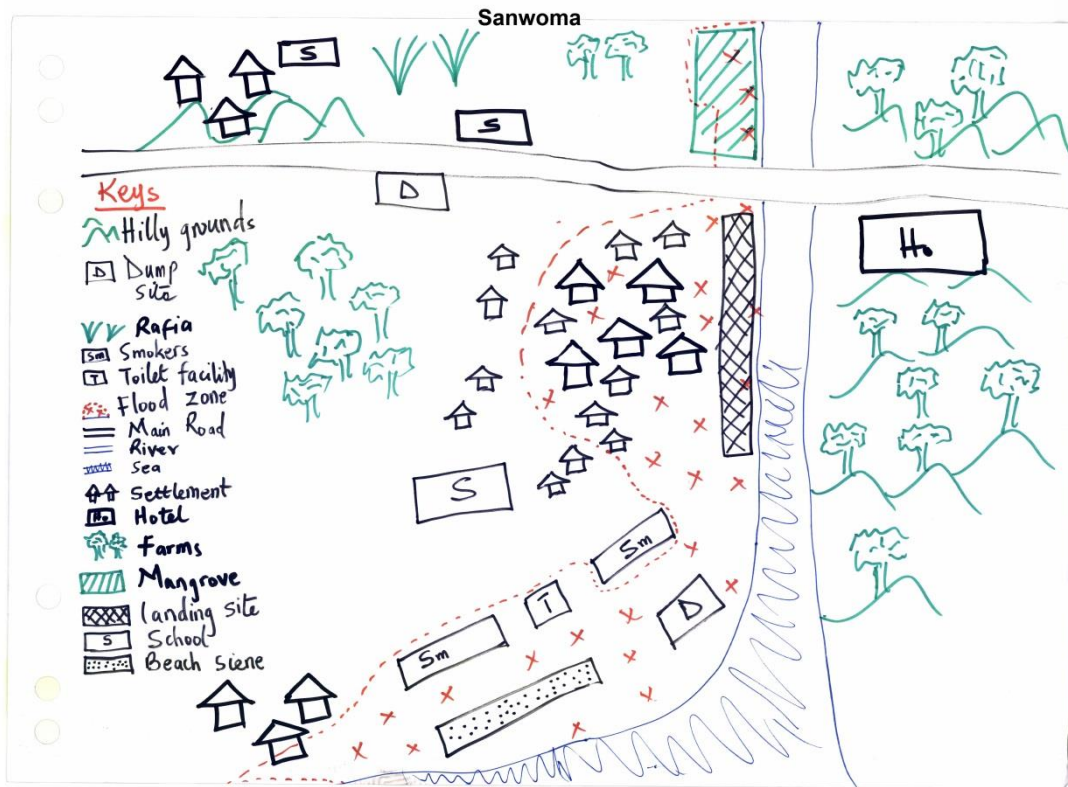 Sanwoma
S
S
D
Keys
Hilly grounds
D Dump
site
Rafia
Sm Smokers
T Toilet facility
Flood zone
Main Road
River
Sea
Settlement
Ho Hotel
Farms
Mangrove
landing site
S School
Beach siene
Ho
S
Sm
T
D
Sm